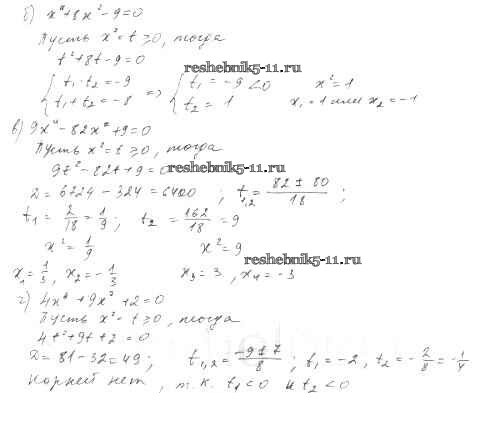 б) x⁴+8x²-9=0
Пусть x²=t ≥0, тогда
t²+8t-9=0
reshebnik5-11.ru
{ t₁·t₂=-9 t₁+t₂=-8 => { t₁=-9<0 t₂=1 x²=1 x₁=1 или x₂=-1
в) 9x⁴-82x²+9=0
Пусть x²=t ≥0, тогда
9t²-82t+9=0 reshebnik5-11.ru
D=6724-324=6400 ; t₁,₂=82±80/18 ;
t₁=2/18=1/9; t₂=162/18=9
x²=1/9 x²=9
reshebnik5-11.ru
x₁=1/3, x₂=-1/3 x₃=3, x₄=-3
г) 4x⁴+9x²+2=0
Пусть x²=t≥0, тогда
4t²+9t+2=0
D=81-32=49; t₁,₂=-9±7/8; t₁=-2, t₂=-2/8=-1/4
Корней нет, т.к. t₁<0 и t₂<0